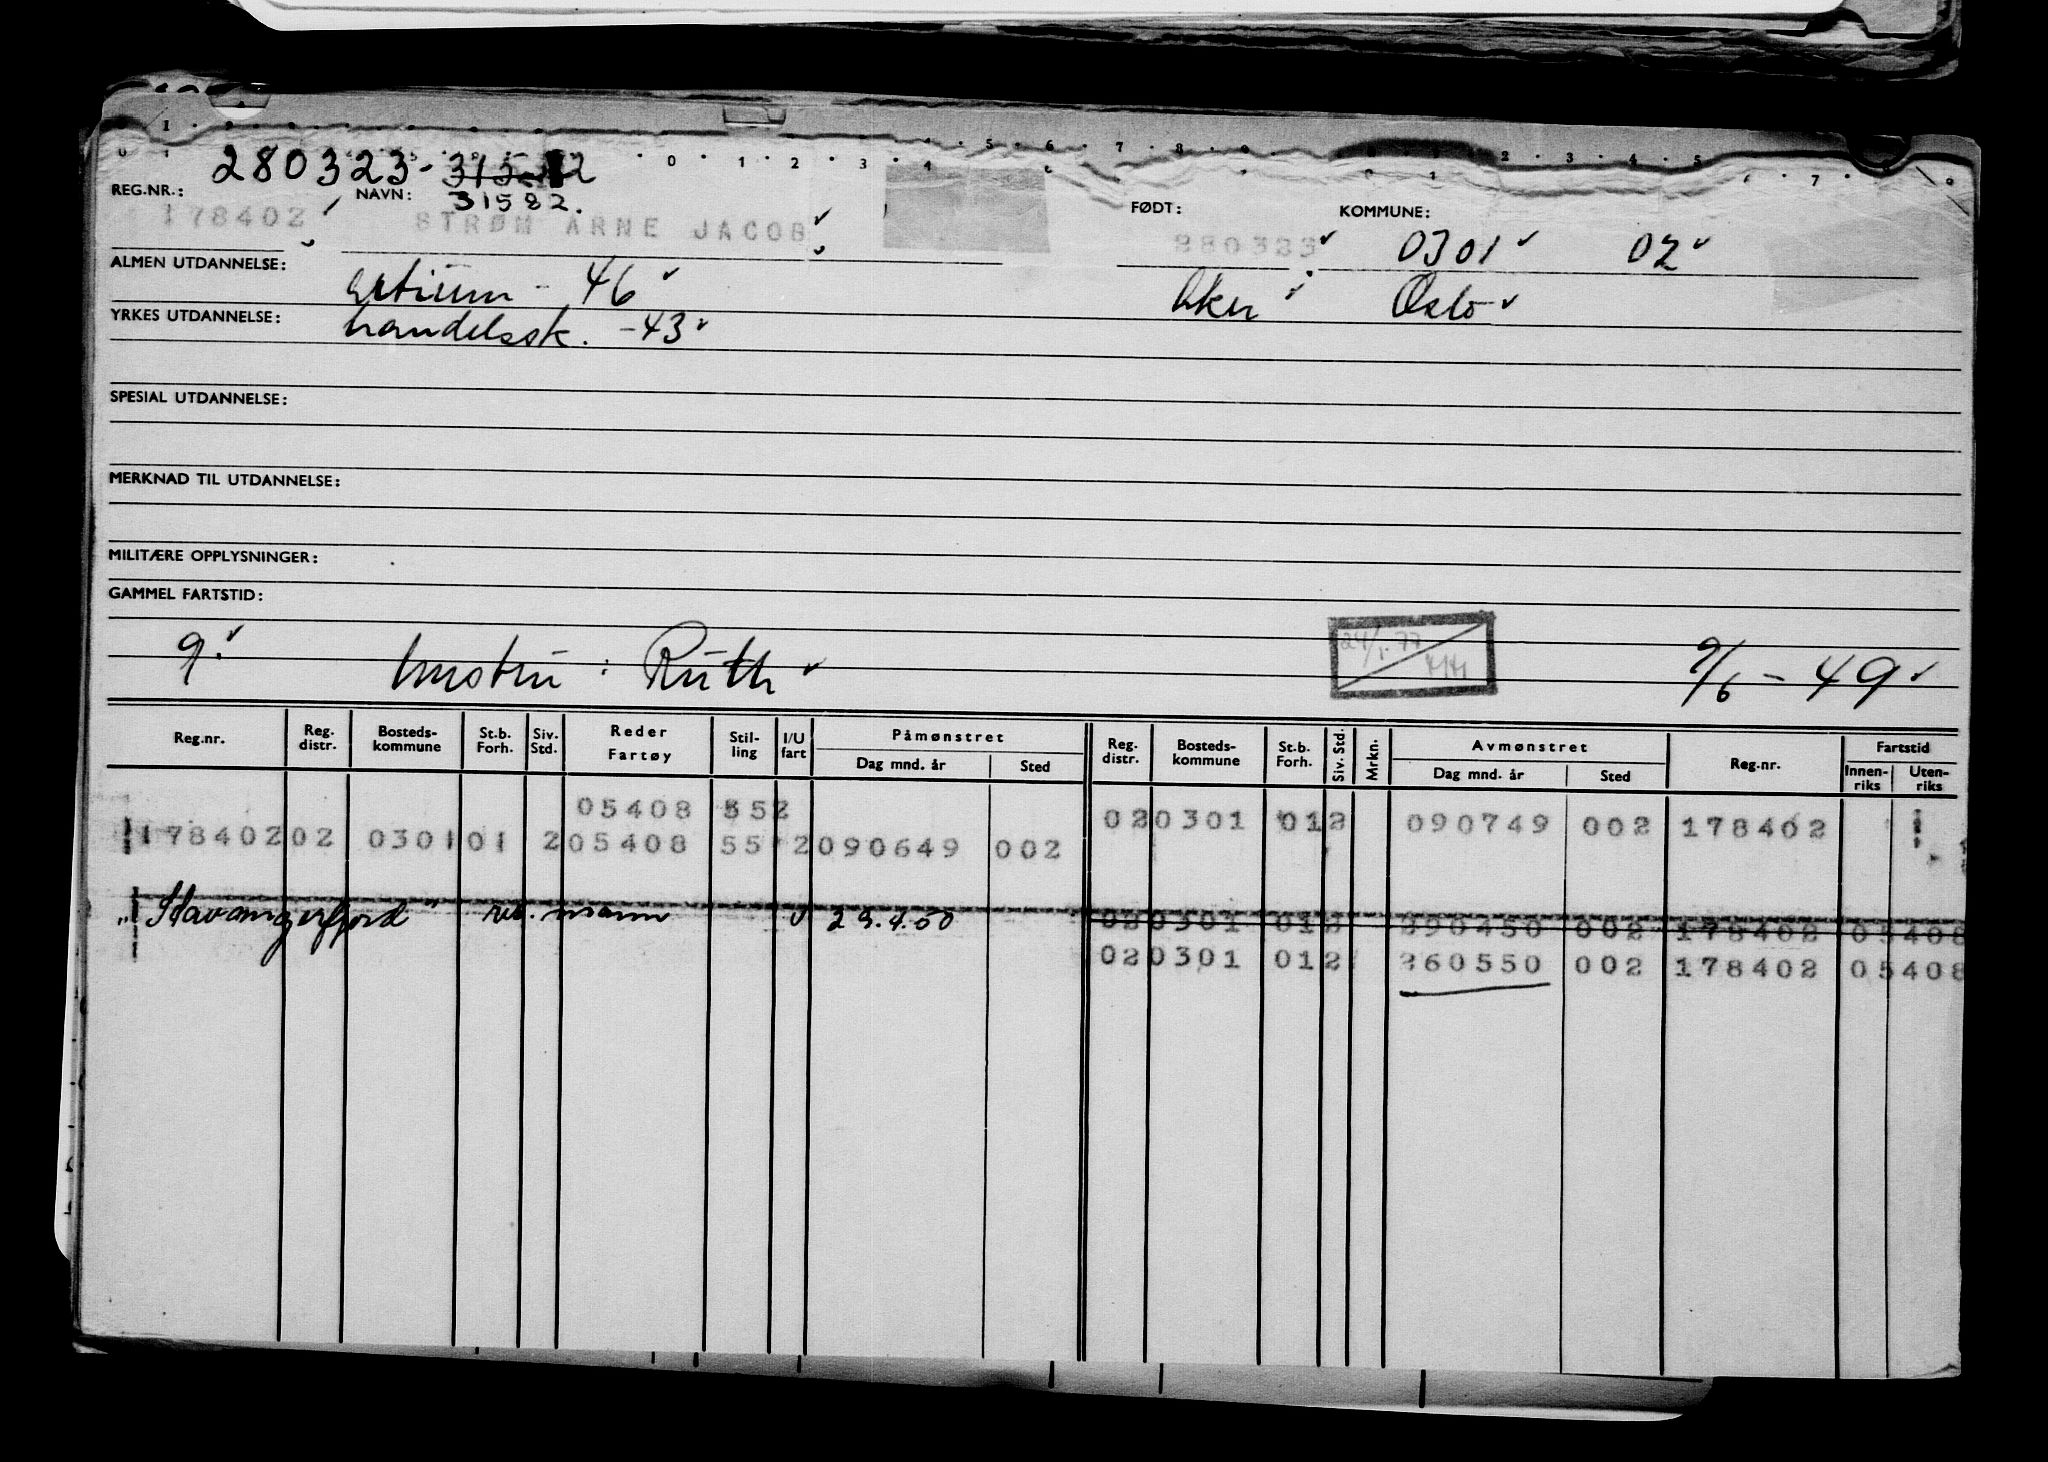 280323-31522
REG.NR.: NAVN: 31582.
178402 STRØM ARNE JACOB FØDT: 280323 KOMMUNE: 0301 02
ALMEN UTDANNELSE: artium - 46 Aker Oslo
YRKES UTDANNELSE: handelssk. -43
SPESIAL UTDANNELSE:
MERKNAD TIL UTDANNELSE:
MILITÆRE OPPLYSNINGER:
GAMMEL FARTSTID:
g. hustru: Ruth 24/1-77 9/6-49
Reg.nr. Reg. distr. Bosteds-kommune St.b. Forh. Siv. Std. Reder Fartøy Stil-ling I/U fart Påmønstret Dag mnd. år Sted Reg. distr. Bosteds-kommune St.b. Forh. Siv. Std. Mrkn. Avmønstret Dag mnd. år Sted Reg.nr. Fartstid Innen-riks Uten-riks
05408 552 02 0301 01 2 090749 002 178402 1
178402 02 0301 01 2 05408 55 2 090649 002
"Stavangerfjord" mann U 29.4.50 02 0301 01 2 290450 002 178402 05408
02 0301 01 2 260550 002 178402 05408